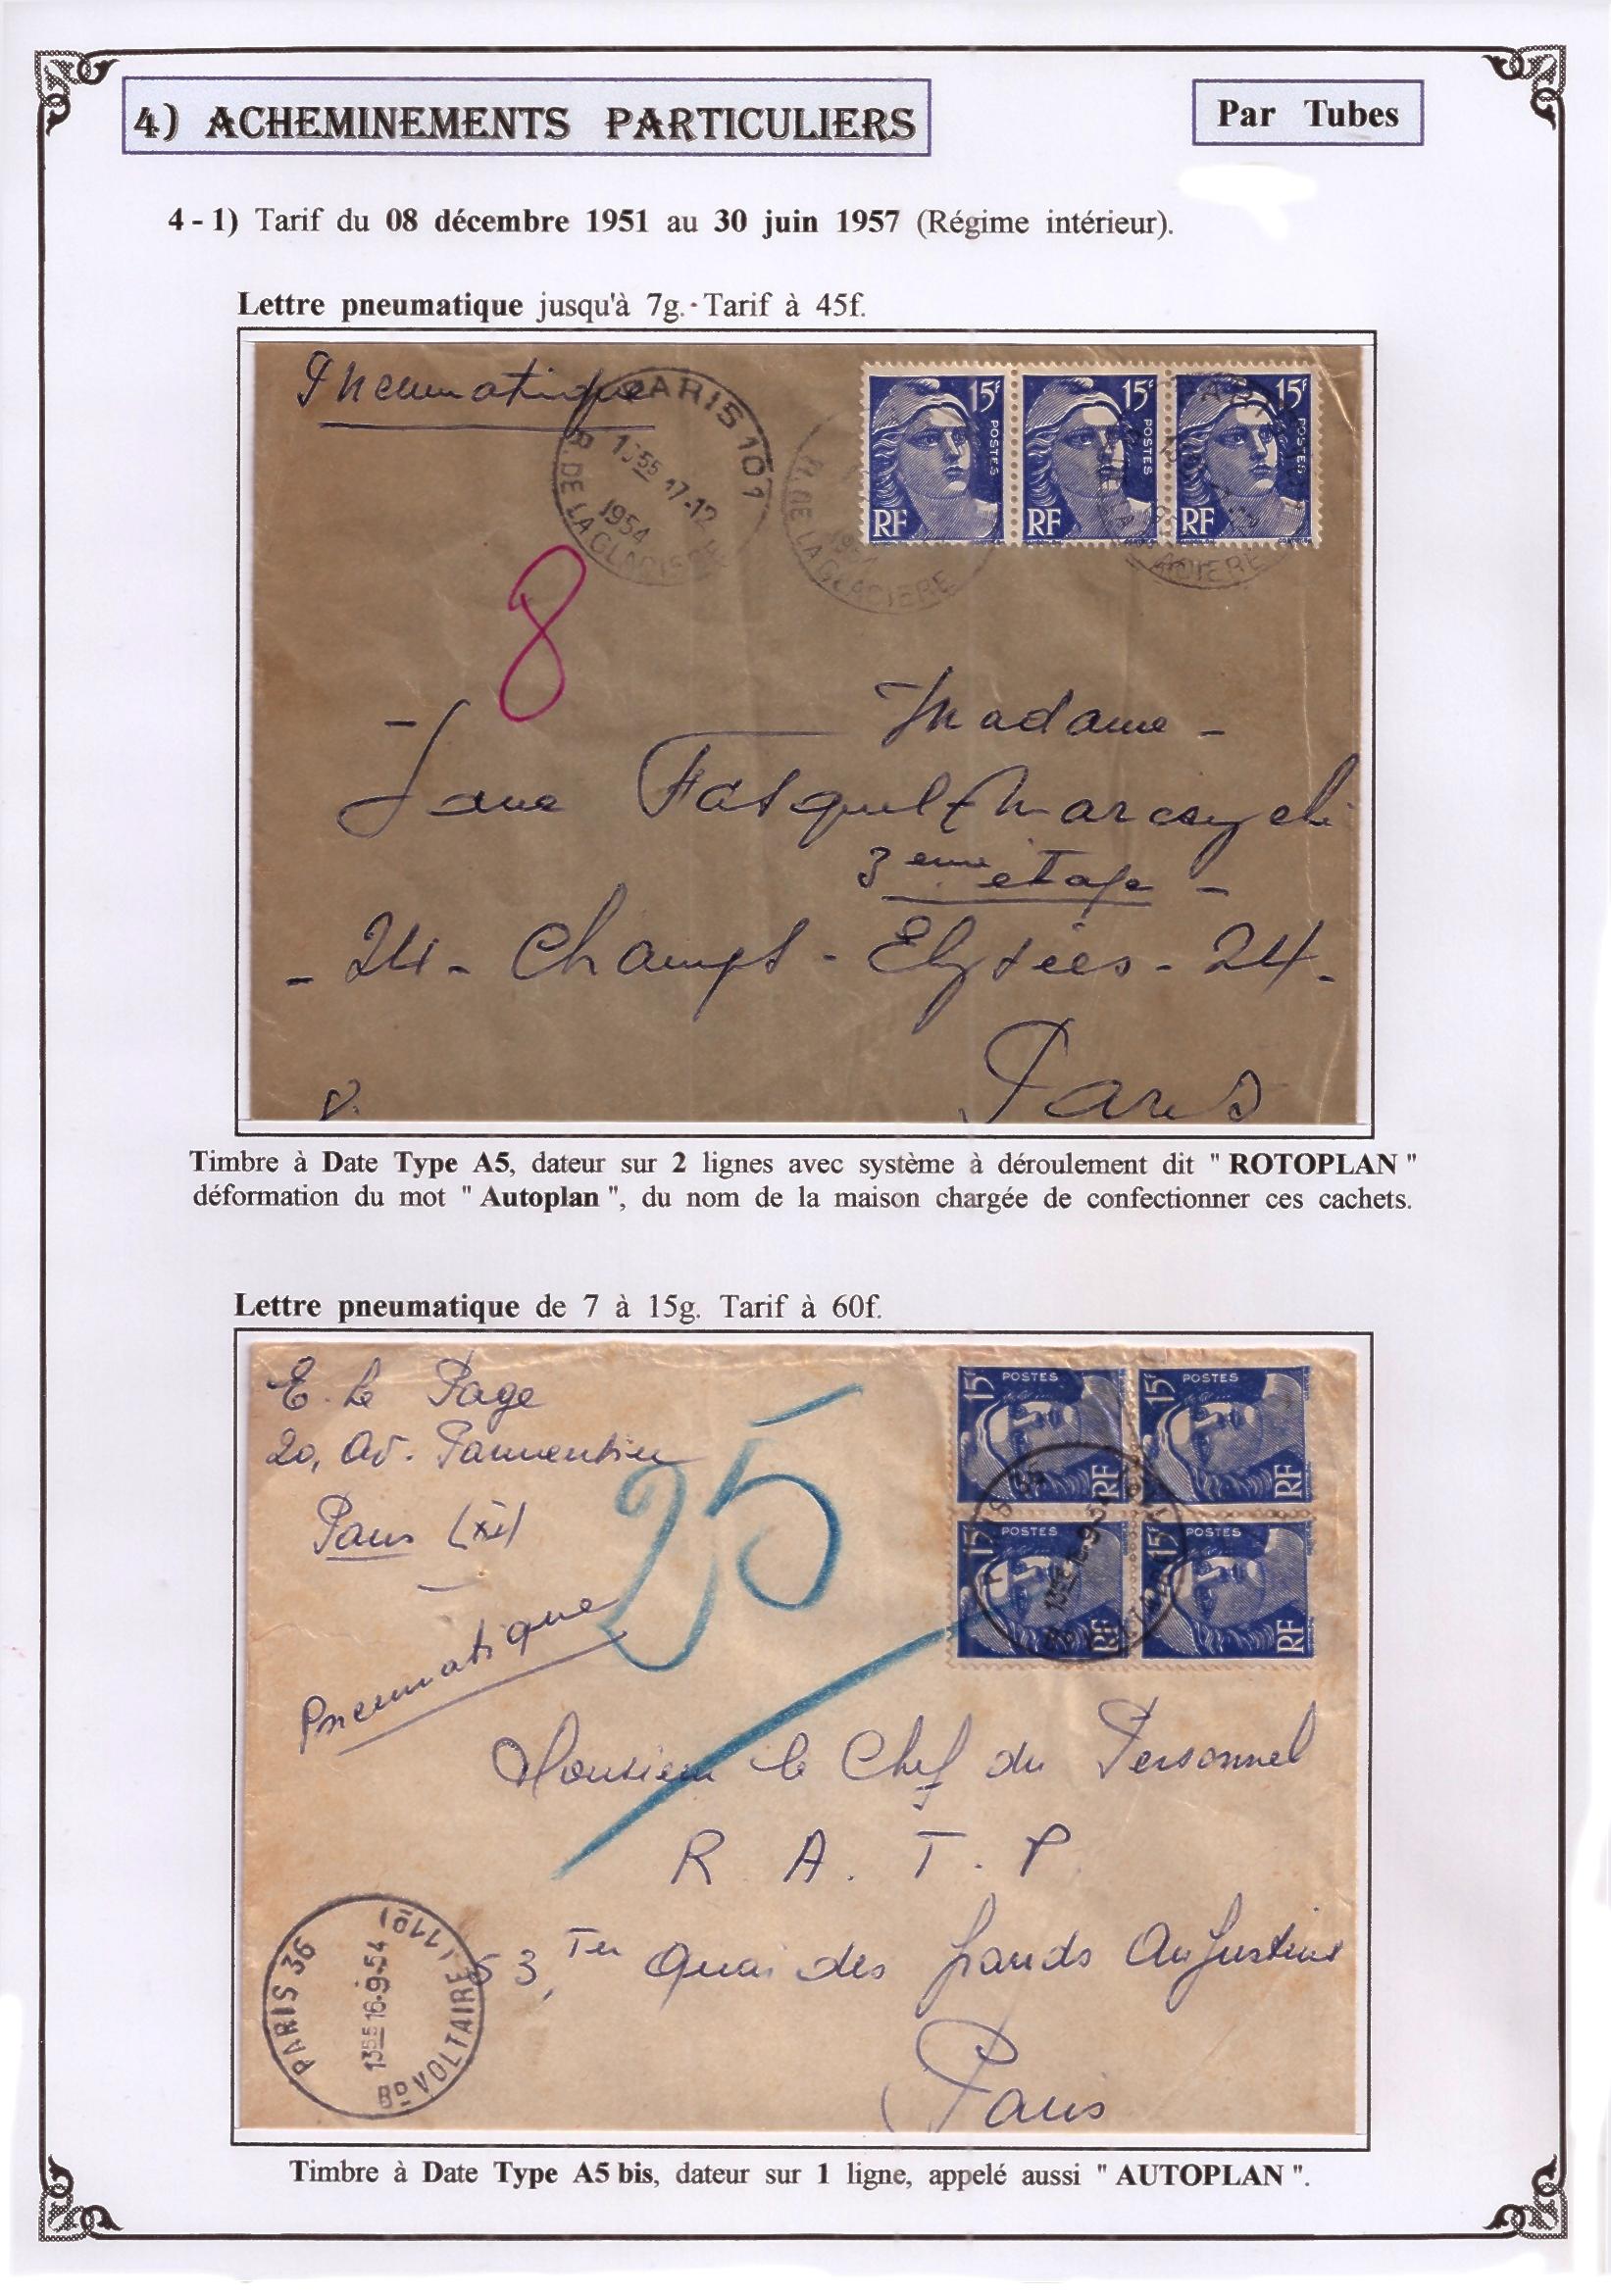 4) ACHEMINEMENTS PARTICULIERS
Par Tubes
4 - 1) Tarif du 08 décembre 1951 au 30 juin 1957 (Régime intérieur).
Lettre pneumatique jusqu'à 7g. Tarif à 45f.
Pneumatique
PARIS 101
17-12
1954
R. DE LA GLACIERE
R. DE LA GLACIERE
15F POSTES RF
15F POSTES RF
15F POSTES RF
8
Madame -
- Jane Fasquel
3eme étage -
- 24 - Champs - Elysées - 24 -
Paris
Timbre à Date Type A5, dateur sur 2 lignes avec système à déroulement dit " ROTOPLAN "
déformation du mot " Autoplan ", du nom de la maison chargée de confectionner ces cachets.
Lettre pneumatique de 7 à 15g. Tarif à 60f.
E. Le Page
20, Av. Parmentier
Paris (XIe)
25
Pneumatique
15F POSTES RF
15F POSTES RF
15F POSTES RF
15F POSTES RF
Monsieur le Chef du Personnel
R A. T. P
53, Ter Quai des grands Augustins
Paris
PARIS 36
1355 16-9-54
BD VOLTAIRE (110)
Timbre à Date Type A5 bis, dateur sur 1 ligne, appelé aussi " AUTOPLAN ".